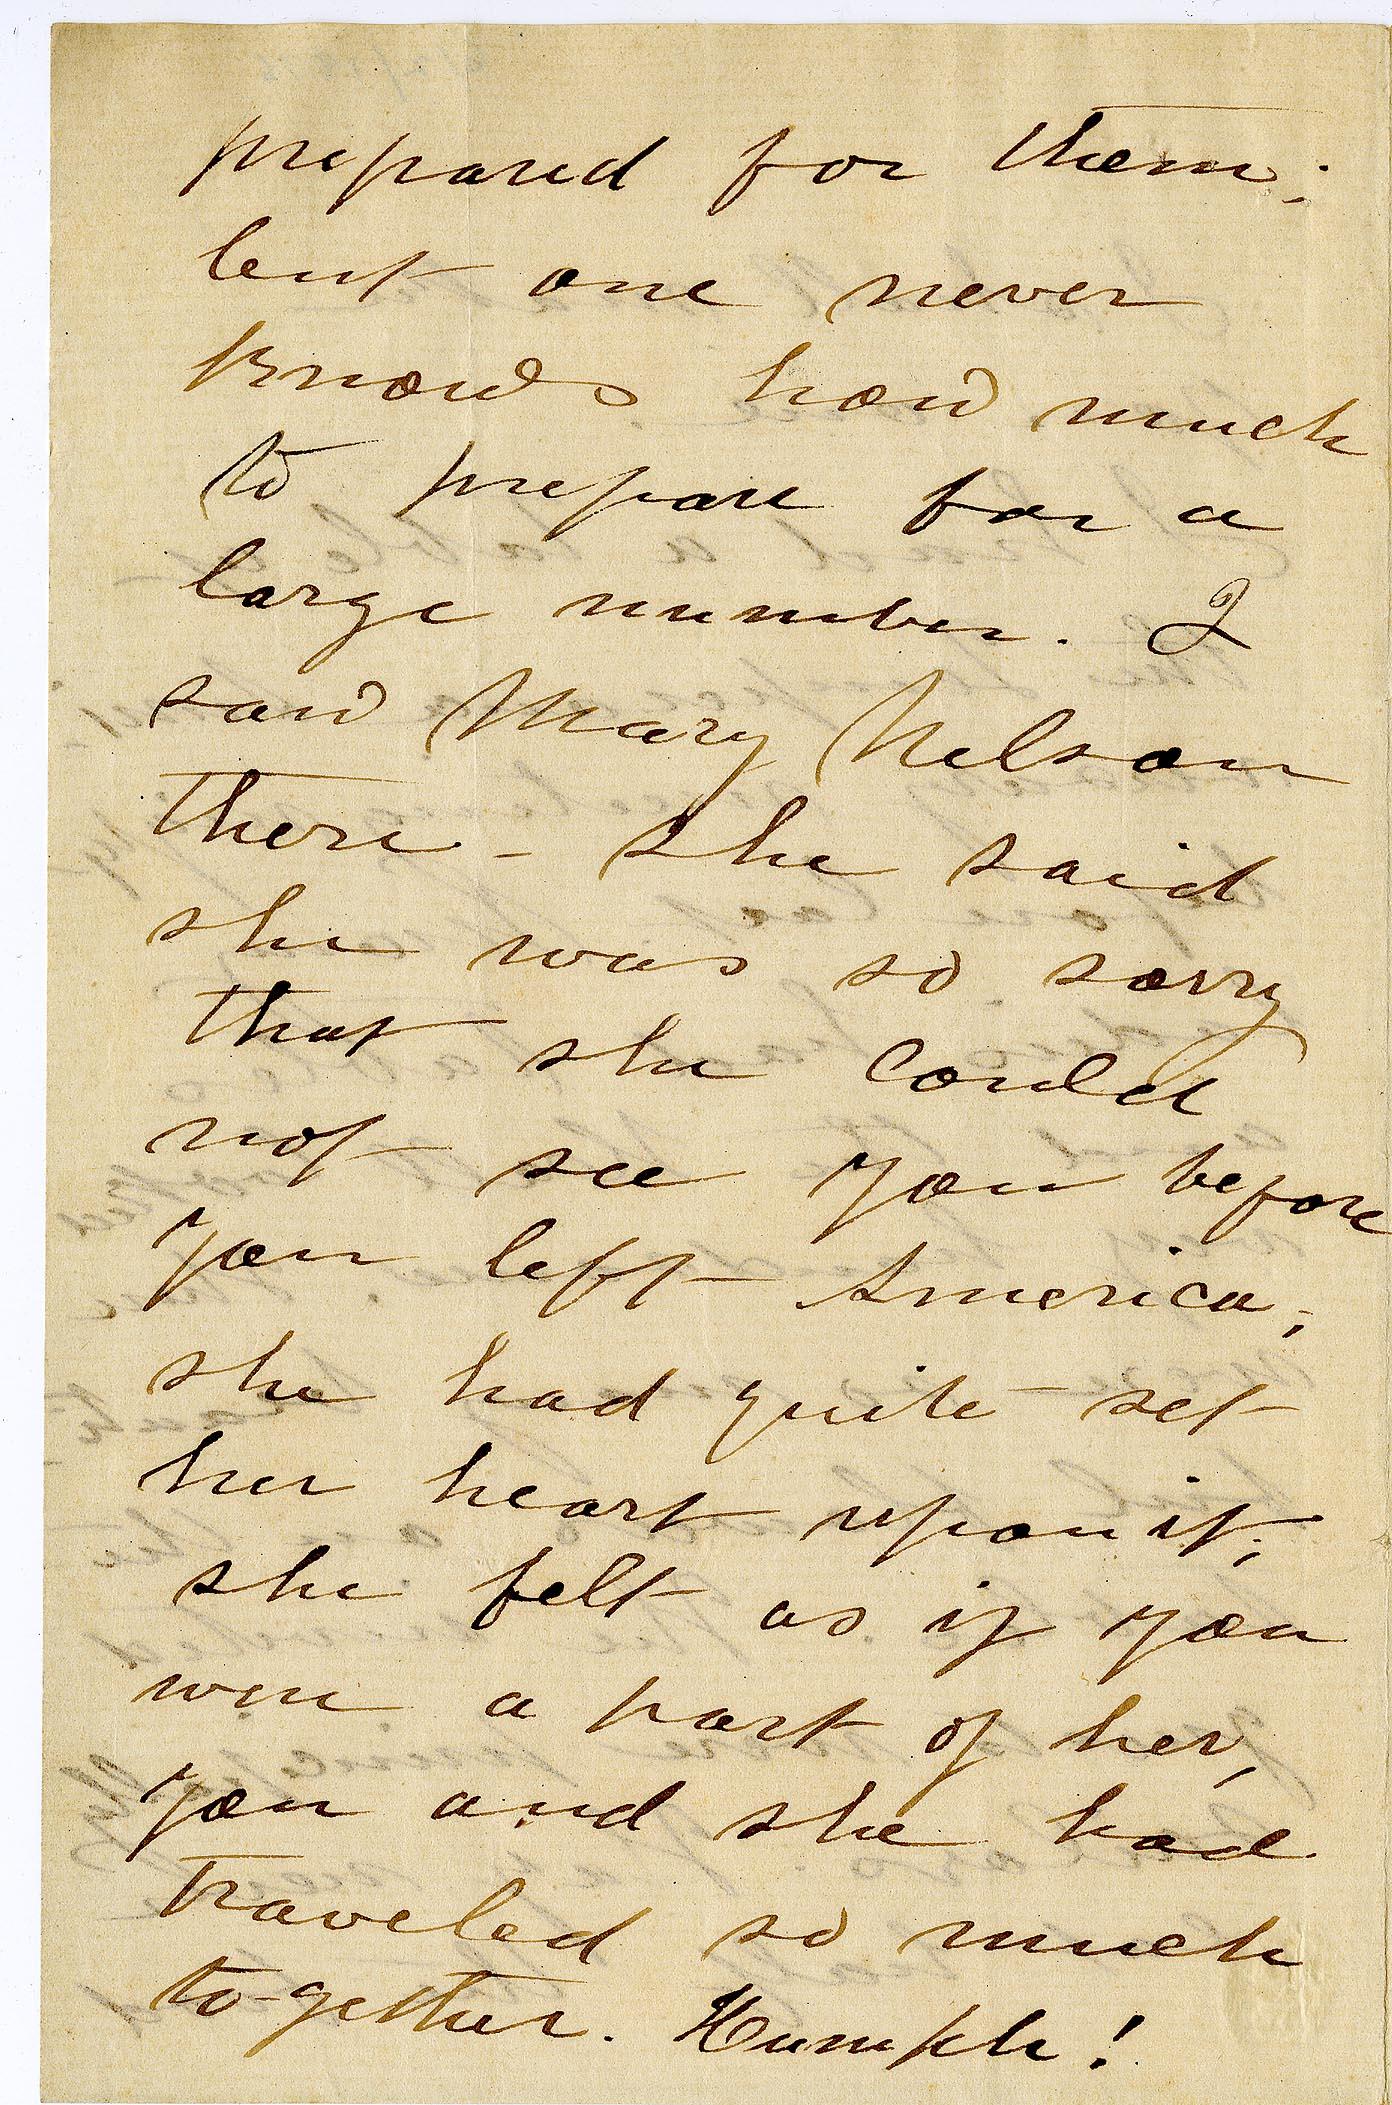 prepared for them;
but one never
knows how much
to prepare for a
large number. I
saw Mary Nelson
there - she said
she was so sorry
that she could
not see you before
you left America;
she had quite set
her heart upon it;
she felt as if you
were a part of her,
you and she had
traveled so much
to-gether. Humph!